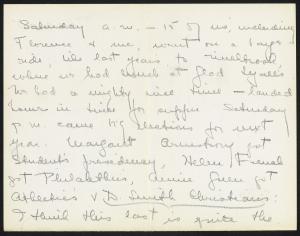 Saturday a.m. – 15 of us, including
Florence & me, went on a bays
ride, like last years, to
where we had lunch at Glad
We had a mighty nice time – landed
home in time for supper. Saturday
p.m. came big elections for next
year. Margaret Armstrong got
Students presidency, Helen French
got Philalethis, Annie Green got
Athletics & D. Smith Christians:
I think this last is quite the